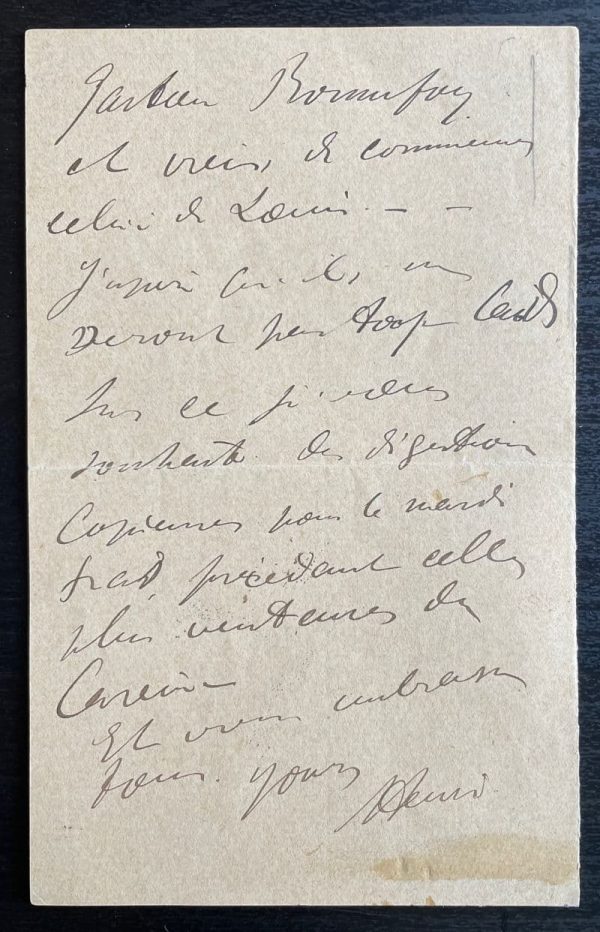 Gaston Bonnefoy
et viens de commencer
celui de Louis - -
J'espère qu'ils ne
seront pas trop laids
Sur ce je vous
souhaite des digestions
copieuses pour le mardi
gras, précédant celles
plus venteuses du
Carême
Et vous embrasse
tous. yours
Henri